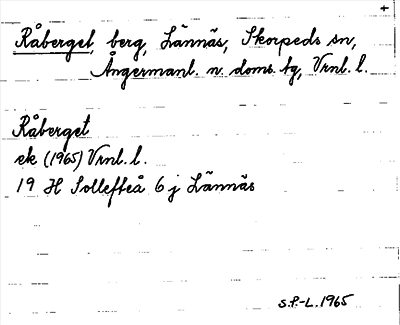 +
Råberget, berg, Lännäs, Skorpeds sn,
Ångermanl. n. doms. tg, Vrnl. l.
Råberget
ek (1965) Vrnl. l.
19 H Sollefteå 6 j Lännäs
S.P.-L. 1965